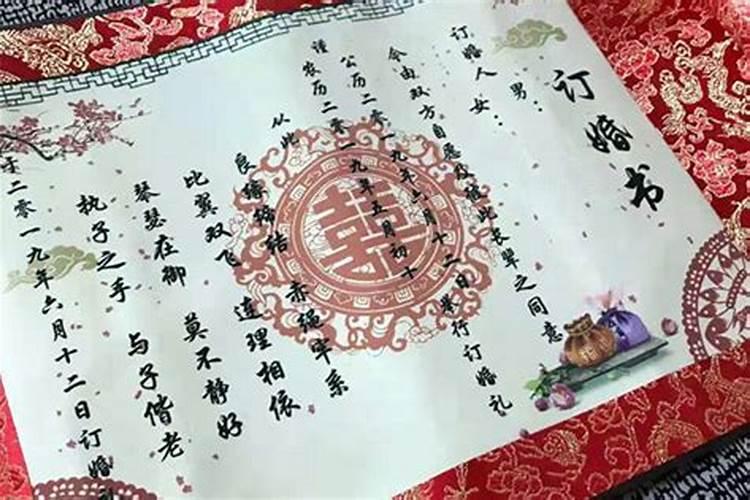 订婚书
订婚人 男：
女：
今由双方自愿及 此长辈之同意
谨
公历二零一九年六月十二日举行订婚礼
农历二零一九年五月初十
从此
良缘缔结 赤绳牢系
比翼双飞 连理相依
琴瑟在御 莫不静好
执子之手 与子偕老
于二零一九年六月十二日订婚